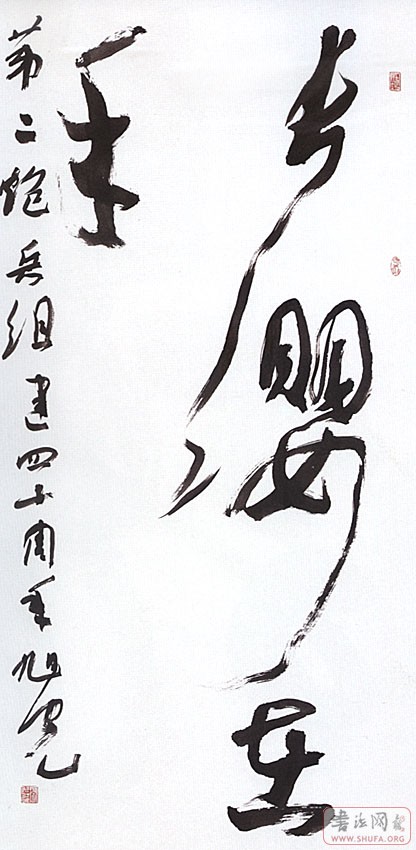 长缨在
手
第二炮兵组建四十周年旭光
书法网
WWW.SHUFA.ORG